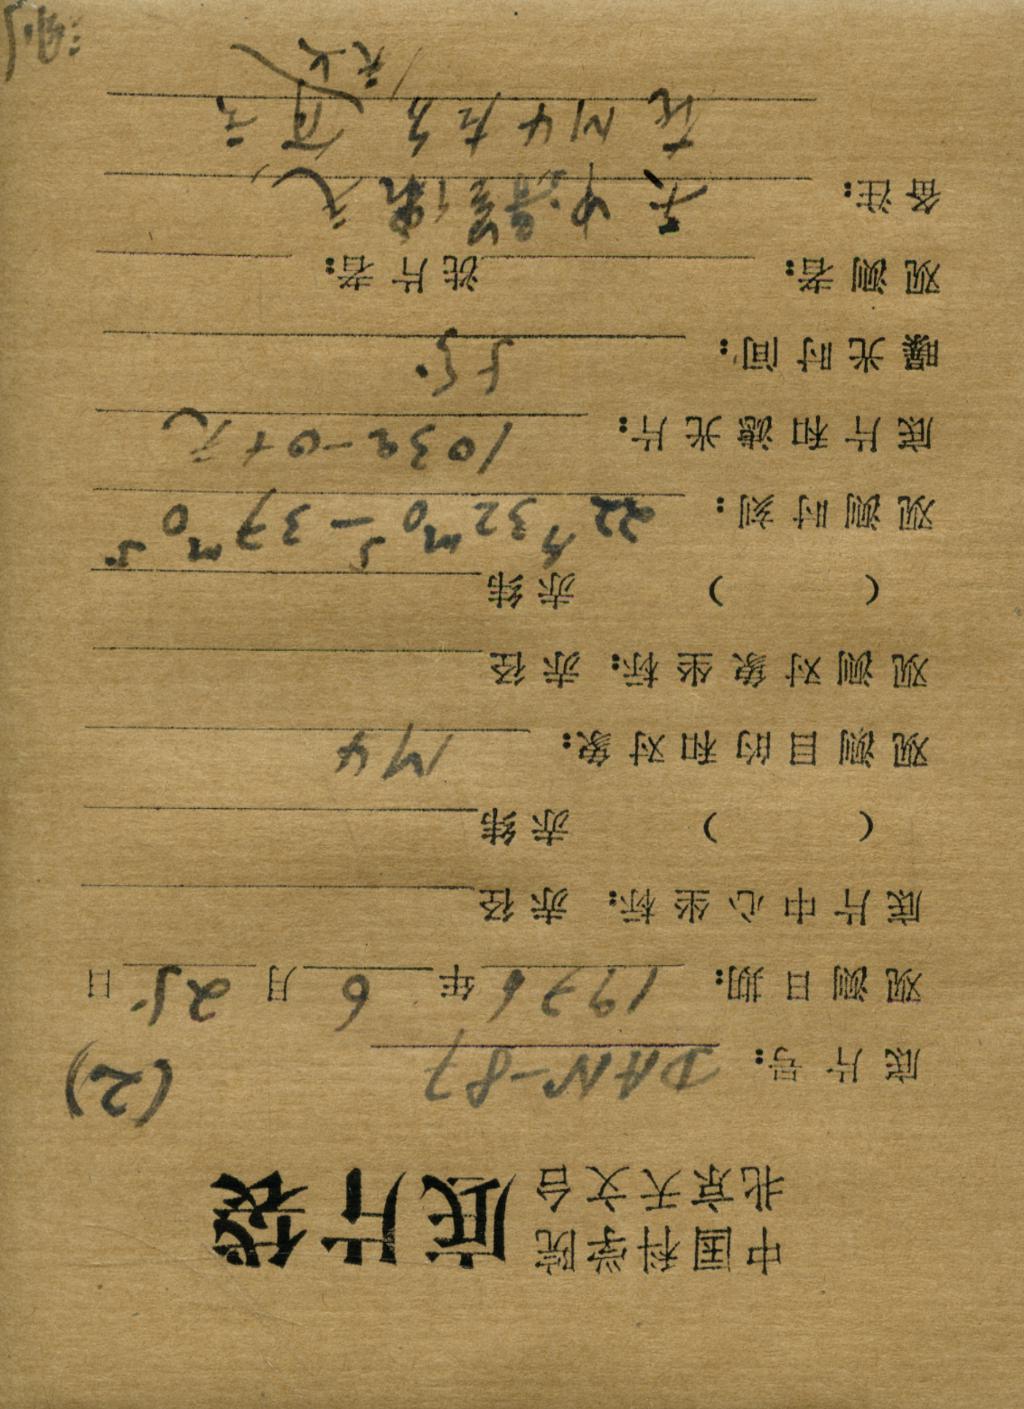 中国科学院
北京天文台
底片袋
(2)
底片号: DAN-87
观测日期: 1976年6月25日
底片中心坐标: 赤径
( ) 赤纬
观测目的和对象: M4
观测对象坐标: 赤径
( ) 赤纬
观测时刻: 22h32m0s-37m0s
底片和滤光片: 103a-O+无
曝光时间: 5
观测者: 洗片者:
备注: 天中
在M4左方有